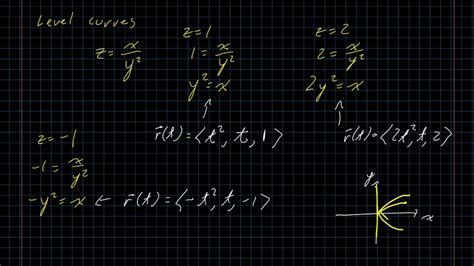 Level curves
z = x/y²
z = 1
1 = x/y²
y² = x
r⃗(t) = ⟨t², t, 1⟩
z = 2
2 = x/y²
2y² = x
r⃗(t) = ⟨2t², t, 2⟩
z = -1
-1 = x/y²
-y² = x ← r⃗(t) = ⟨-t², t, -1⟩
y
x